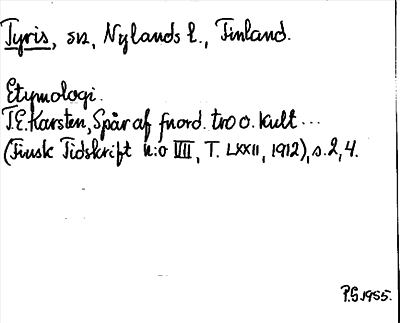 Tyris, sn, Nylands l., Finland.
Etymologi.
T.E. Karsten, Spår af fnord. tro o. kult ...
(Finsk Tidskrift n:o VIII, T. LXXII, 1912), s. 2, 4.
P.S. 1955.